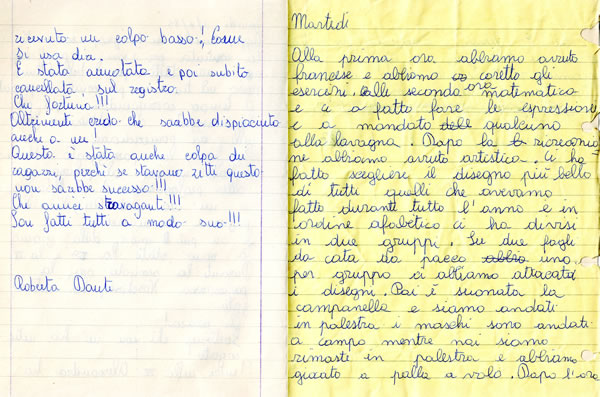 ricevuto un colpo basso!, Come
si usa dia.
E stata annotata e poi subito
cancellata sul registro.
Che fortuna!!!
Altrimenti credo che sarebbe dispiaciuto
anche a me!
Questa è stata anche colpa dei
ragazzi, perchi se stavano zitti questo
non sarebbe successo!!!
Che amici stravaganti!!!
Son fatti tutti a modo suo!!!
Roberta Danti
Martedì
Alla prima ora abbiamo avuto
francese e abbiamo coretto gli
esercizi. Alle seconda ora matematica
e ci a fatto fare le espressioni
e a mandato qualcuno
alla lavagna. Dapo la ricreazio
ne abbiamo avuto artistica. Ci ha
fatto scegliere il disegno più bello
di tutti quelli che avevamo
fatto durante tutto l'anno e in
ordine afabetico ci ha divisi
in due gruppi. Su due fogli
da cata da pacco uno
per gruppo ci abbiamo attacata
i disegni. Poi è suonata la
campanella e siamo andati
in palestra i maschi sono andati
a campo mentre noi siamo
rimasti in palestra e abbiamo
giocato a palla a volo. Dapo l'ora